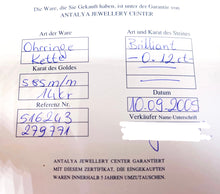 Die Ware, die Sie Gekauft haben, ist unter der Garantie von
ANTALYA JEWELLERY CENTER
Art der Ware
Ohrringe
Kette
Karat des Goldes
585 m/m
14kr
Referenz Nr.
516243
279771
Art und Karat des Steines
Brilliant
- 0.12 ct -
Datum
10.09.2009
Verkäufer Name/Unterschrift
ANTALYA JEWELLERY CENTER GARANTIERT
MIT DIESEM ZERTIFIKAT, DIE EINGEKAUFTEN
WAREN INNERHALB 5 JAHREN UMZUTAUSCHEN.